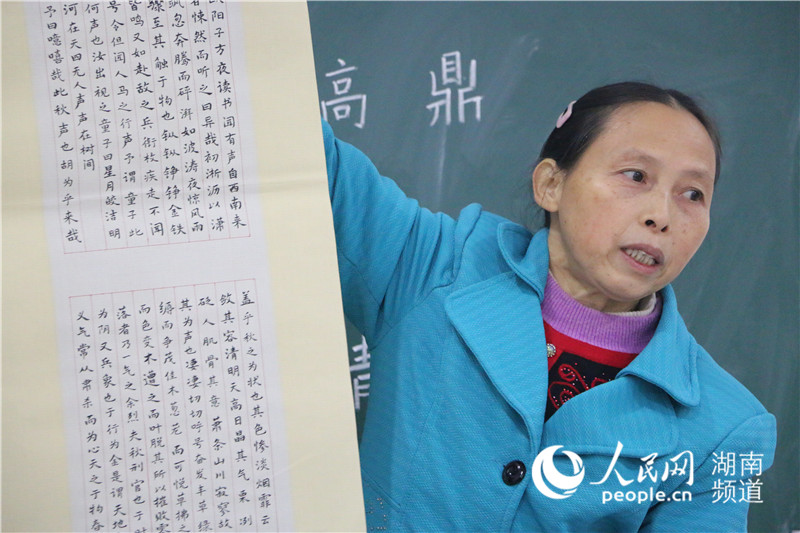 阳子方夜读书闻有声自西南来
者悚然而听之曰异哉初淅沥以潇
飒忽奔腾而砰湃如波涛夜惊风雨
骤至其触于物也纵纵铮铮金铁
皆鸣又如赴敌之兵衔枚疾走不闻
号令但闻人马之行声予谓童子此
何声也汝出视之童子曰星月皎洁明
河在天四无人声声在树间
予曰噫嘻哉此秋声也胡为乎来哉
盖乎秋之为状也其色惨淡烟霏云
敛其容清明天高日晶其气栗冽
砭人肌骨其意萧条山川寂寥故
其为声也凄凄切切呼号奋发丰草绿
缛而争茂佳木葱茏而可悦草拂之
而色变木遭之而叶脱其所以摧败零
落者乃一气之余烈夫秋刑官也于时
为阴又兵象也于行为金是谓天地
义气常从肃杀而为心天之于物春
高鼎
人民网 湖南频道
people.cn